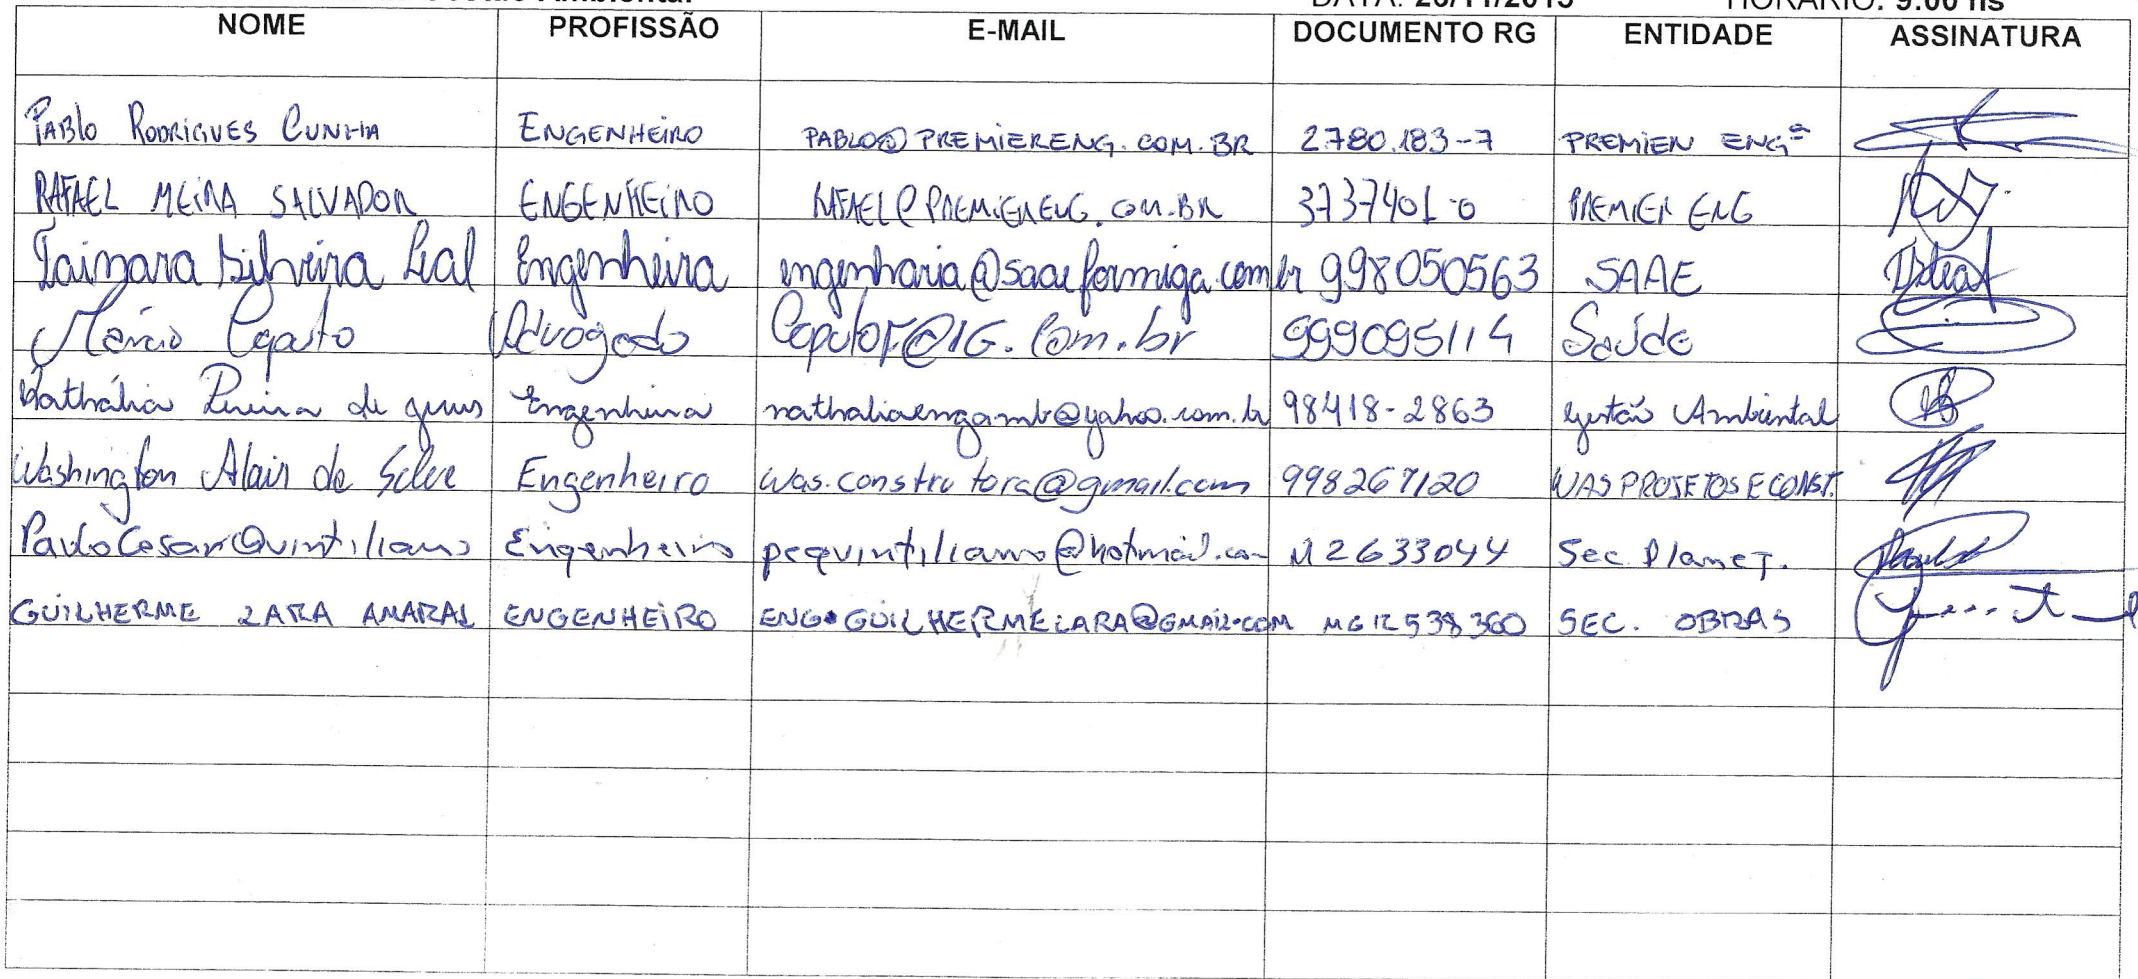 Ambiental DATA: 26/11/2015 HORÁRIO: 9:00 hs
NOME PROFISSÃO E-MAIL DOCUMENTO RG ENTIDADE ASSINATURA
PABLO RODRIGUES CUNHA ENGENHEIRO PABLO@PREMIERENG.COM.BR 2.780.183-7 PREMIER ENGª
RAFAEL MEIRA SALVADOR ENGENHEIRO RAFAEL@PREMIERENG.COM.BR 3737401-0 PREMIER ENG
Taimara Silveira Leal Engenheira engenharia@saaeformiga.com.br 998050563 SAAE
Márcio Advogado @IG.Com.br 999095114 Saúde
Nathália Pereira de Engenheira nathaliaengamb@yahoo.com.br 98418-2863 Gestão Ambiental
Washington Alair da Silva Engenheiro was.construtora@gmail.com 998267120 WAS PROJETOS E CONST.
Paulo Cesar Quintiliano Engenheiro pcquintiliano@hotmail.com M2633044 Sec. Planej.
GUILHERME LARA AMARAL ENGENHEIRO ENG.GUILHERMELARA@GMAIL.COM MG12538360 SEC. OBRAS